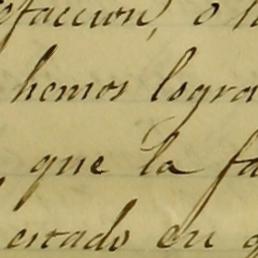 efaccion, o
hemos logra
que la fa
estado en